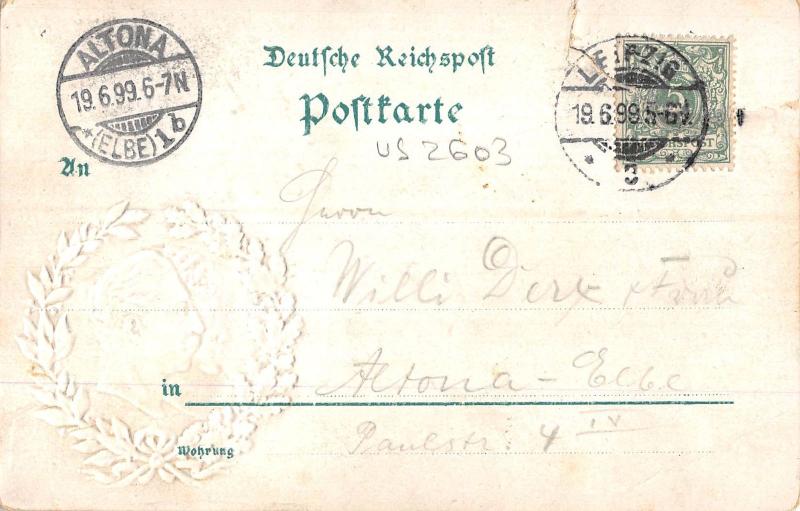 ALTONA
19.6.99.6-7N
*(ELBE)1b
Deutsche Reichspost
Postkarte
LEIPZIG
19.6.99.5-6N.
* 5 *
REICHSPOST
US 2603
An
Herrn
Willi Derx & Frau
in Altona-Elbe
Wohnung
Paulstr. 4 IV